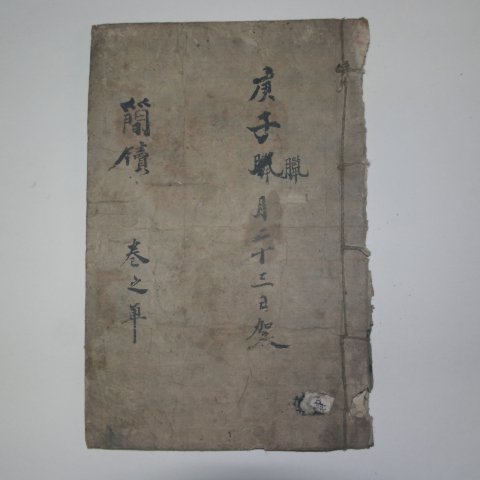 庚子臘月二十三日架
臘
簡牘
卷之單